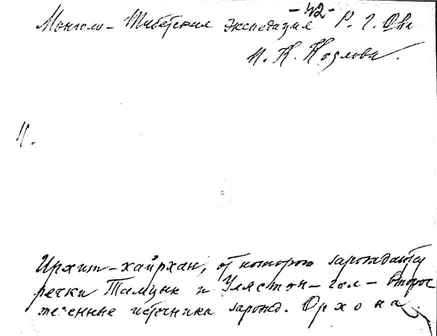 -42-
Монголо-Тибетская экспедиция Р. Г. О-ва
П. К. Козлова.
Ирхит-хайрхан, от которого зарождаются
речки Тамцык и Улястын-гол - второс
тепенные источника зарожд. Орхона.